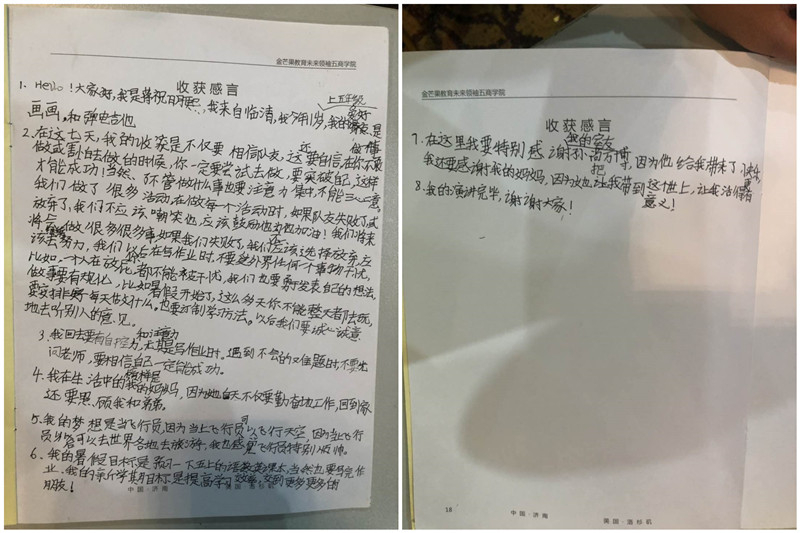 金芒果教育未来领袖五商学院
收获感言
上五年级
1、Hello！大家好，我是蒋祝，我来自临清，我今年11岁，我的爱好是
画画，和弹吉他
2、在这七天，我的收获是不仅要相信队友，还要自信，在你不敢
做或害怕去做的时候，你一定要尝试去做，要突破自己，这样
才能成功！当然，不管做什么事也要注意力集中，不能三心二意。
我们做了很多活动，在做每个活动时，如果队友失败了或
放弃了，我们不应该嘲笑他，应该鼓励他为他加油！我们将来
将会做很多很多事，如果我们失败了，我们不应该选择放弃，应
该去努力，我们以后在写作业时，不要受外界任何一个事物干扰，
比如，一个人在放屁都不能被干扰，我们也要勇于发表自己的想法，
做事要有规化，比如暑假开始了，这么多天你不能整天都去玩，
要安排好每天做什么。也要才制学习方法。以后我们要诚心诚意
地去听别人的意见。
3、我回去要有自控力和注意力，尤其是写作业时，遇到不会的又难题时，不要先
问老师，要相信自己一定能成功。
4、我在生活中的榜样是我的妈妈，因为她白天不仅要勤奋地工作，回到家
还要照顾我和弟弟。
5、我的梦想是当飞行员，因为当上飞行员可以飞行天空，因为当上飞行
员可以去世界各地去旅游，我也感觉飞行员特别帅。
6、我的暑假目标是预习一下五上的语数英课本，当我也要写完作
业、我的新学期目标是提高学习效率，交到更多更多的
朋友！
中国·济南 美国·洛杉矶
金芒果教育未来领袖五商学院
收获感言
7、在这里我要特别感谢孙尚万博，因为他给我带来了快乐，
我还要感谢我的妈妈，因为她把让我带到这世上，让我活得有
意义！
8、我的演讲完毕，谢谢大家！
18
中国·济南
美国·洛杉矶